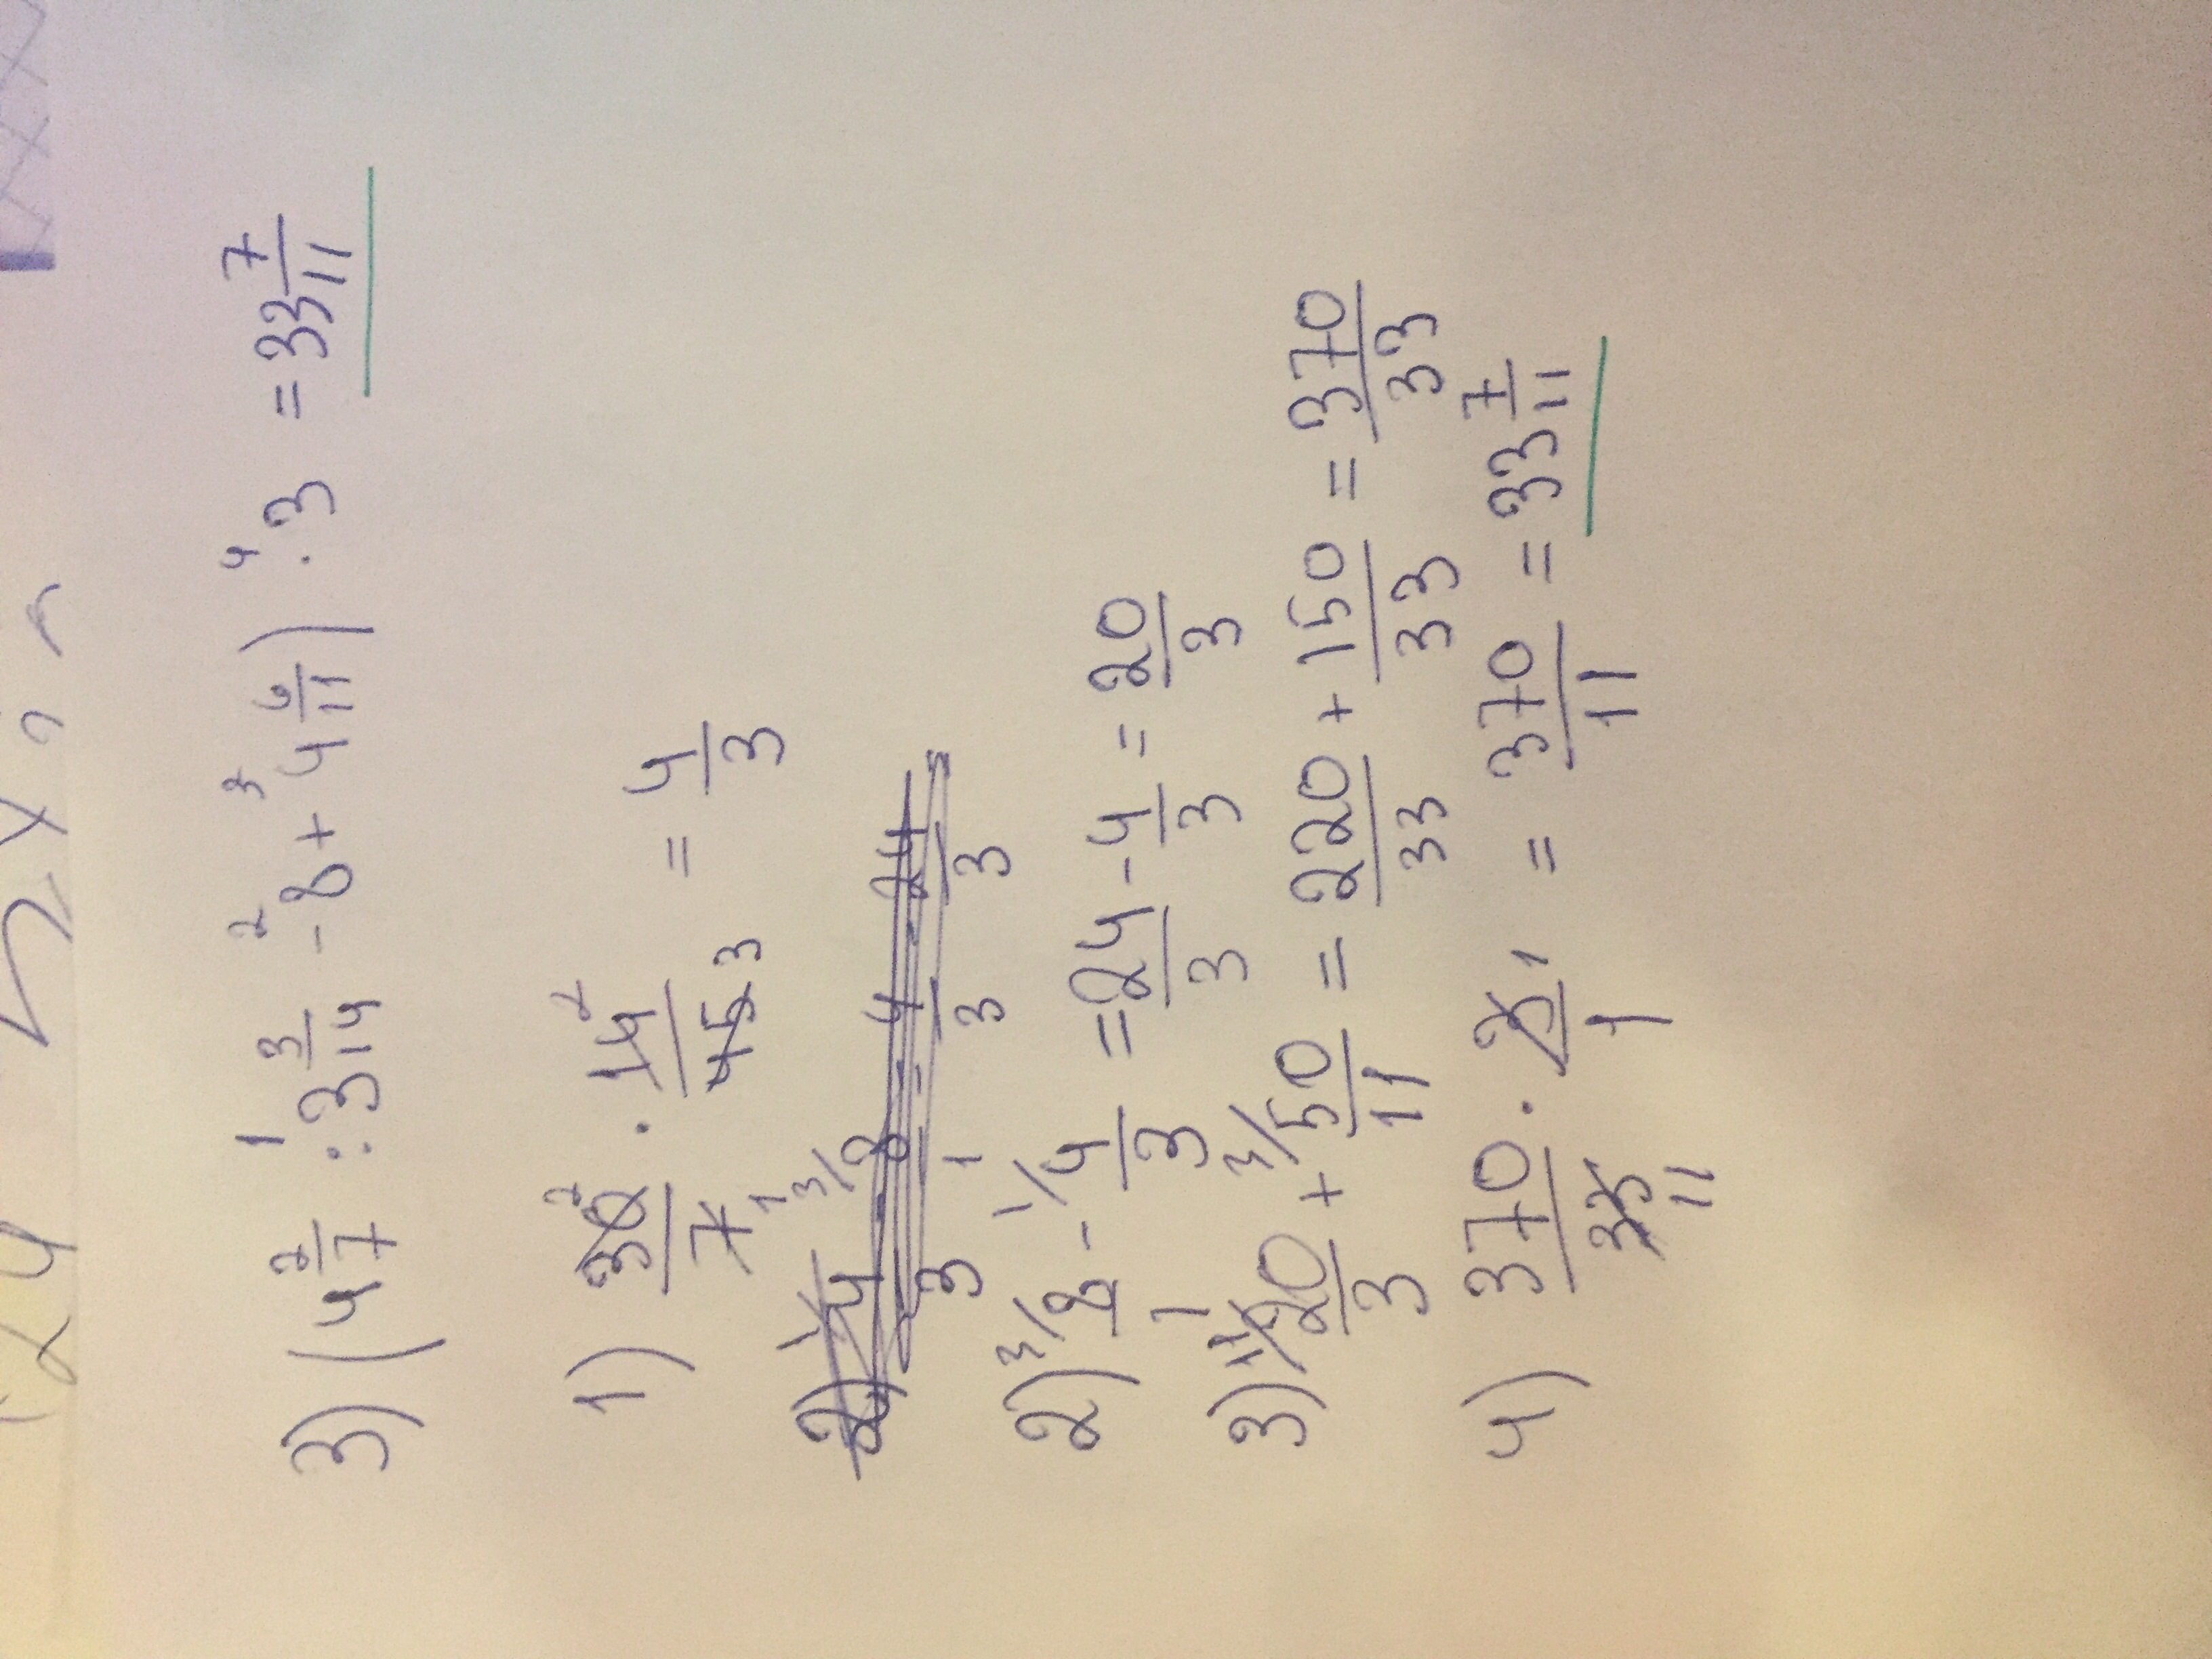 3) (4 2/7 : 3 3/14 - 8 + 4 6/11) · 3 = 33 7/11
1 2 3 4
1) 30/7 · 14/45 = 4/3
2 2 1 3
2) 8/1 - 4/3 = 24/3 - 4/3 = 20/3
3) 20/3 + 50/11 = 220/33 + 150/33 = 370/33
4) 370/33 · 3/1 = 370/11 = 33 7/11